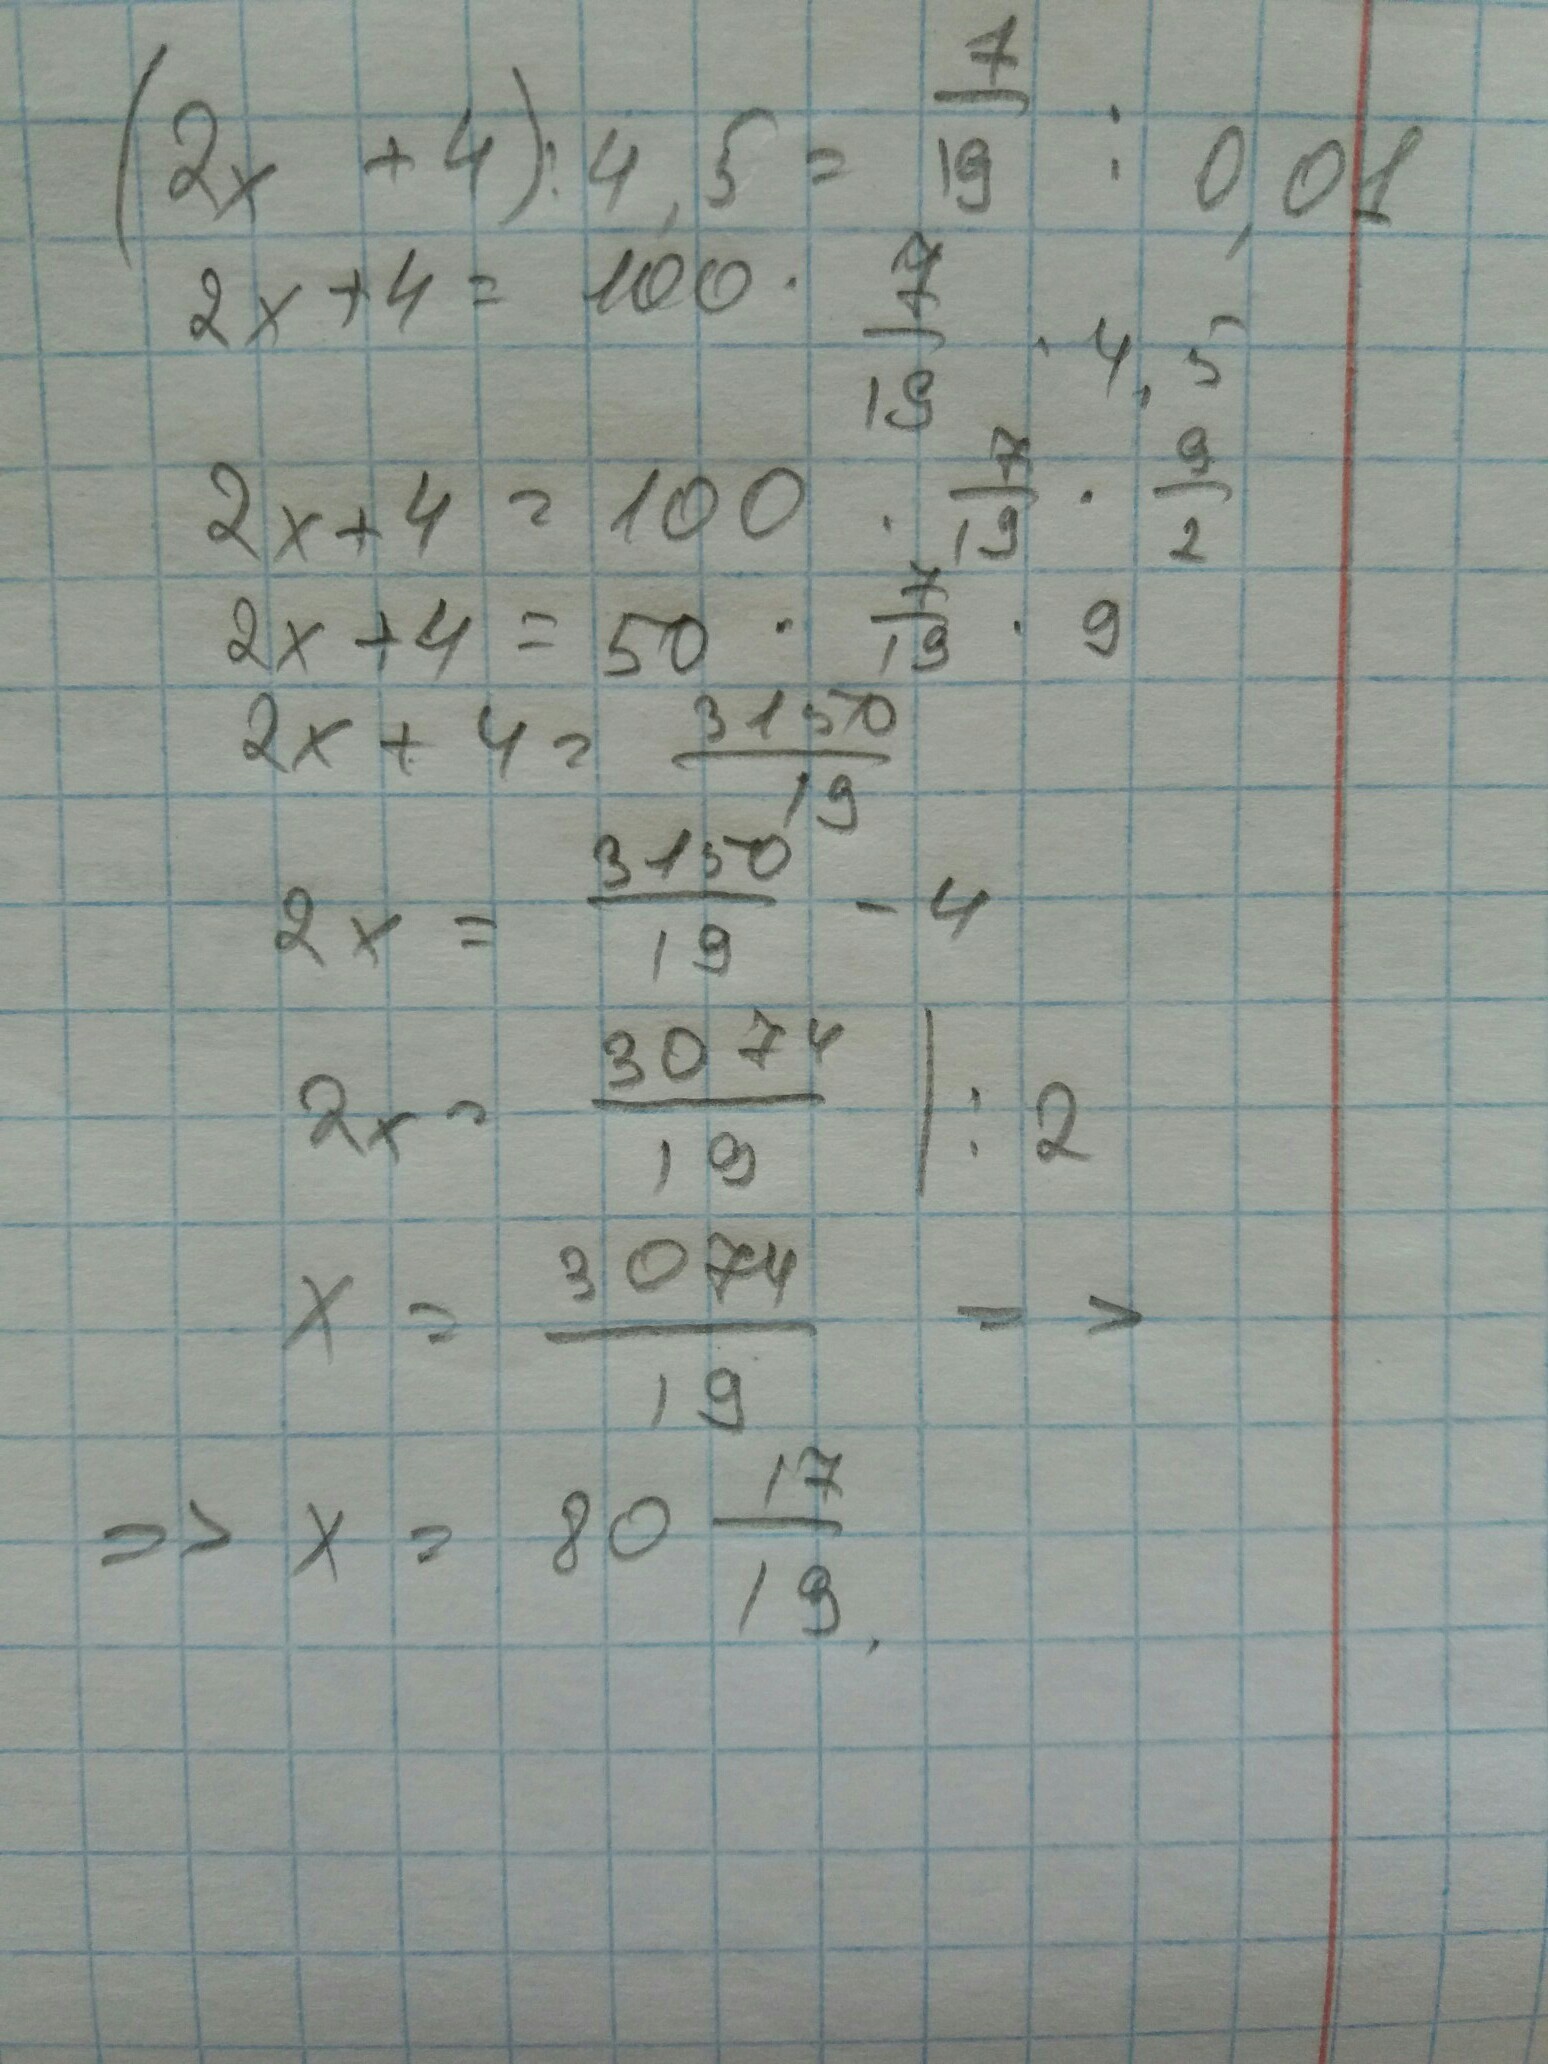 (2x + 4) : 4,5 = 7/19 : 0,01
2x + 4 = 100 · 7/19 · 4,5
2x + 4 = 100 · 7/19 · 9/2
2x + 4 = 50 · 7/19 · 9
2x + 4 = 3150/19
2x = 3150/19 - 4
2x = 3074/19 | : 2
x = 3074/19 =>
=> x = 80 17/19.